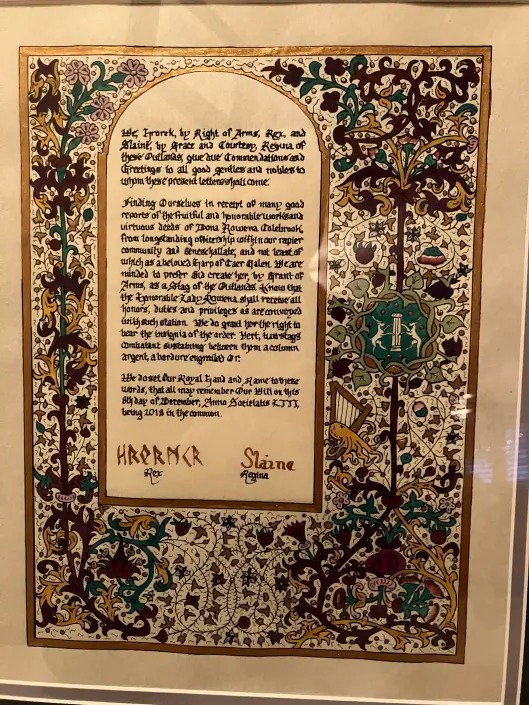 We, Hrorek, by Right of Arms, Rex, and
Slaine, by Grace and Courtesy, Regina of
these Outlands, give due Commendations and
Greetings to all good gentles and nobles to
whom these present letters shall come.
Finding Ourselves in receipt of many good
reports of the fruitful and honorable works and
virtuous deeds of Dona Rowena Colebrook,
from longstanding officership within our rapier
community and Seneschallate, and not least of
which as a beloved Harp of Caer Galen. We are
minded to prefer and create her, by Grant of
Arms, as a Stag of the Outlands. Know that
the Honorable Lady Rowena shall receive all
honors, duties and privileges as are conveyed
with such station. We do grant her the right to
bear the insignia of the order: Vert, two stags
combatant sustaining between them a column
argent, a bordure engrailed Or.
We do set Our Royal Hand and Name to these
words, that all may remember Our Will on this
8th day of December, Anno Societatis LIII,
being 2018 in the common.
Slaine
Rex Regina